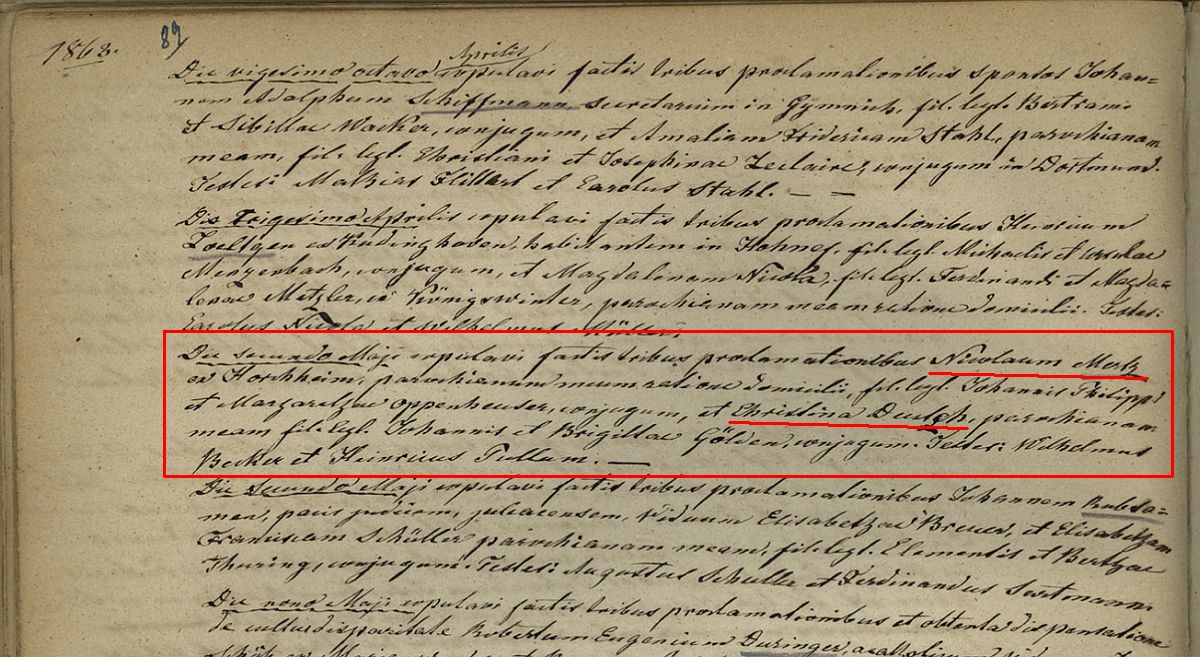 1863.
89
Aprilis
Die vigesimo octavo copulavi factis tribus proclamationibus sponsos Johan=
nem Adolphum Schiffmann secretarium in Gymnich, fil. legl. Bertrami
et Sibillae Wacker, conjugum, et Amaliam Fridericam Stahl, parochianam
meam, fil. legl. Christiani et Josephinae Leclaire, conjugum in Dortmund.
Testes: Mathias Hilbert et Carolus Stahl. — —
Die trigesimo Aprilis copulavi factis tribus proclamationibus Henricum
Loeltgen ex Rudinghoven, habitantem in Honnef, fil. legl. Michaelis et Ursulae
Menzenbach, conjugum, et Magdalenam Nicola, fil. legl. Ferdinandi et Magda=
lenae Metzler, ex Königswinter, parochianam meam ratione domicilii. Testes:
Carolus Nicola et Wilhelmus Müller.
Die secundo Maji copulavi factis tribus proclamationibus Nicolaum Mertz
ex Horchheim, parochianum meum ratione domicilii, fil. legl. Johannis Philippi
et Margarethae Oppenheuser, conjugum, et Christina Deutsch, parochianam
meam fil. legl. Johannis et Brigittae Gölden, conjugum. Testes: Wilhelmus
Becker et Heinricus Tullum. —
Die secundo Maji copulavi factis tribus proclamationibus Johannem Rubsa=
men, pacis judicem, juliacensem, viduum Elisabethae Breuer, et Elisabetham
Franciscam Schüller parochianam meam, fil. legl. Clementis et Berthae
Thuring, conjugum. Testes: Augustus Schuller et Ferdinandus
Die nono Maji copulavi factis tribus proclamationibus et obtenta dispensatione
de cultus disparitate Robertum Eugenium Duringer, acatholicum